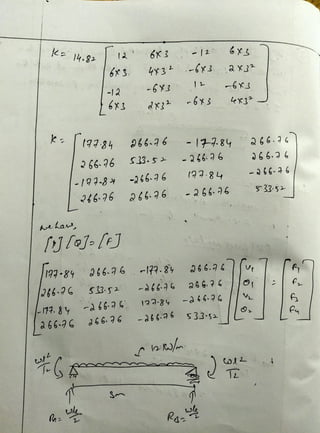 K = 14.82 [ 12 6×3 -12 6×3
6×3 4×3² -6×3 2×3²
-12 -6×3 12 -6×3
6×3 2×3² -6×3 4×3² ]
K = [ 177.84 266.76 -177.84 266.76
266.76 533.52 -266.76 266.76
-177.84 -266.76 177.84 -266.76
266.76 266.76 -266.76 533.52 ]
we have,
[K] [Q] = [F]
[ 177.84 266.76 -177.84 266.76 ] [ V₁ ] = [ F₁ ]
266.76 533.52 -266.76 266.76 θ₁ F₂
-177.84 -266.76 177.84 -266.76 V₂ F₃
266.76 266.76 -266.76 533.52 θ₂ F₄
12 kN/m
wl²/12 wl²/12
3m
R_A = wl/2 R_B = wl/2